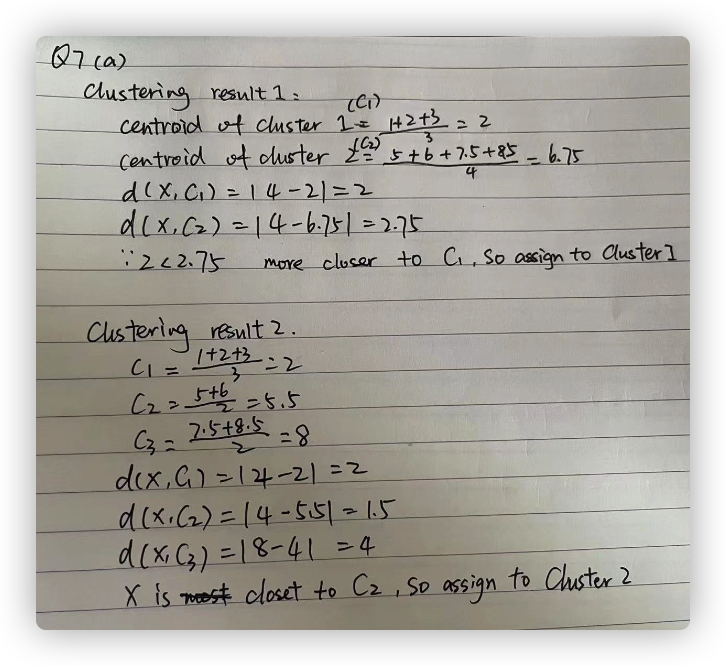 Q7 (a)
Clustering result 1:
centroid of cluster 1 (C₁) = (1+2+3)/3 = 2
centroid of cluster 2 (C₂) = (5+6+7.5+8.5)/4 = 6.75
d(X, C₁) = |4-2| = 2
d(X, C₂) = |4-6.75| = 2.75
∵ 2 < 2.75 more closer to C₁, So assign to Cluster 1
Clustering result 2.
C₁ = (1+2+3)/3 = 2
C₂ = (5+6)/2 = 5.5
C₃ = (7.5+8.5)/2 = 8
d(X, C₁) = |4-2| = 2
d(X, C₂) = |4-5.5| = 1.5
d(X, C₃) = |8-4| = 4
X is most closet to C₂, So assign to Cluster 2